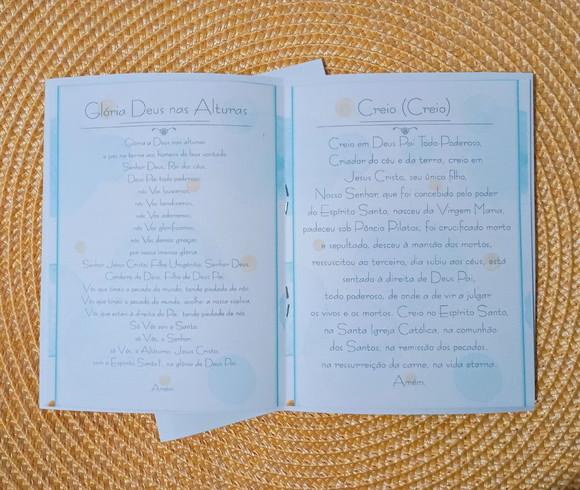 Glória Deus nas Alturas
Glória a Deus nas alturas
e paz na terra aos homens de boa vontade.
Senhor Deus, Rei dos céus,
Deus Pai todo poderoso:
nós Vos louvamos,
nós Vos bendizemos,
nós Vos adoramos,
nós Vos glorificamos,
nós Vos damos graças
por vossa imensa glória.
Senhor Jesus Cristo, Filho Unigênito, Senhor Deus,
Cordeiro de Deus, Filho de Deus Pai.
Vós que tirais o pecado do mundo, tende piedade de nós.
Vós que tirais o pecado do mundo, acolhei a nossa súplica.
Vós que estais à direita do Pai, tende piedade de nós.
Só Vós sois o Santo,
só Vós, o Senhor,
só Vós, o Altíssimo, Jesus Cristo,
com o Espírito Santo, na glória de Deus Pai.
Amém.
Creio (Creio)
Creio em Deus Pai Todo-Poderoso,
Criador do céu e da terra, creio em
Jesus Cristo, seu único filho,
Nosso Senhor, que foi concebido pelo poder
do Espírito Santo, nasceu da Virgem Maria,
padeceu sob Pôncio Pilatos, foi crucificado morto
e sepultado, desceu à mansão dos mortos,
ressuscitou ao terceiro, dia subiu aos céus, está
sentado à direita de Deus Pai,
todo poderoso, de onde a de vir a julgar
os vivos e os mortos. Creio no Espírito Santo,
na Santa Igreja Católica, na comunhão
dos Santos, na remissão dos pecados,
na ressurreição da carne, na vida eterna.
Amém.